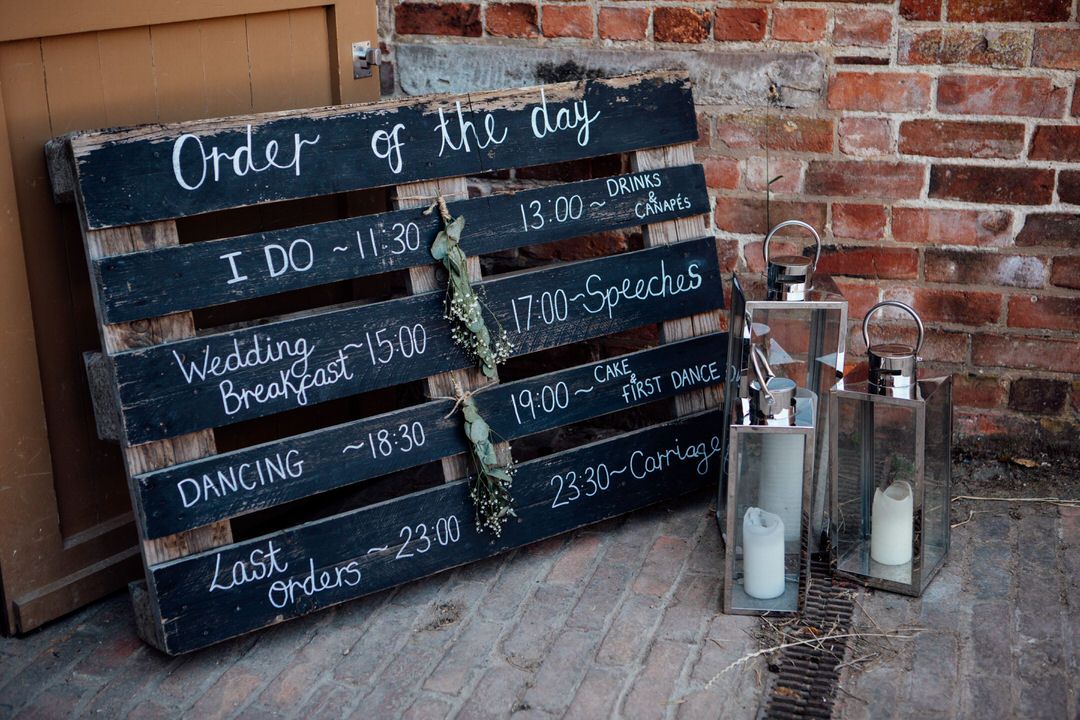 Order of the day
I DO ~ 11:30
13:00 ~ DRINKS
&
CANAPÉS
Wedding
Breakfast ~ 15:00
17:00 ~ Speeches
DANCING ~ 18:30
19:00 ~ CAKE
&
FIRST DANCE
Last
orders ~ 23:00
23:30 ~ Carriage